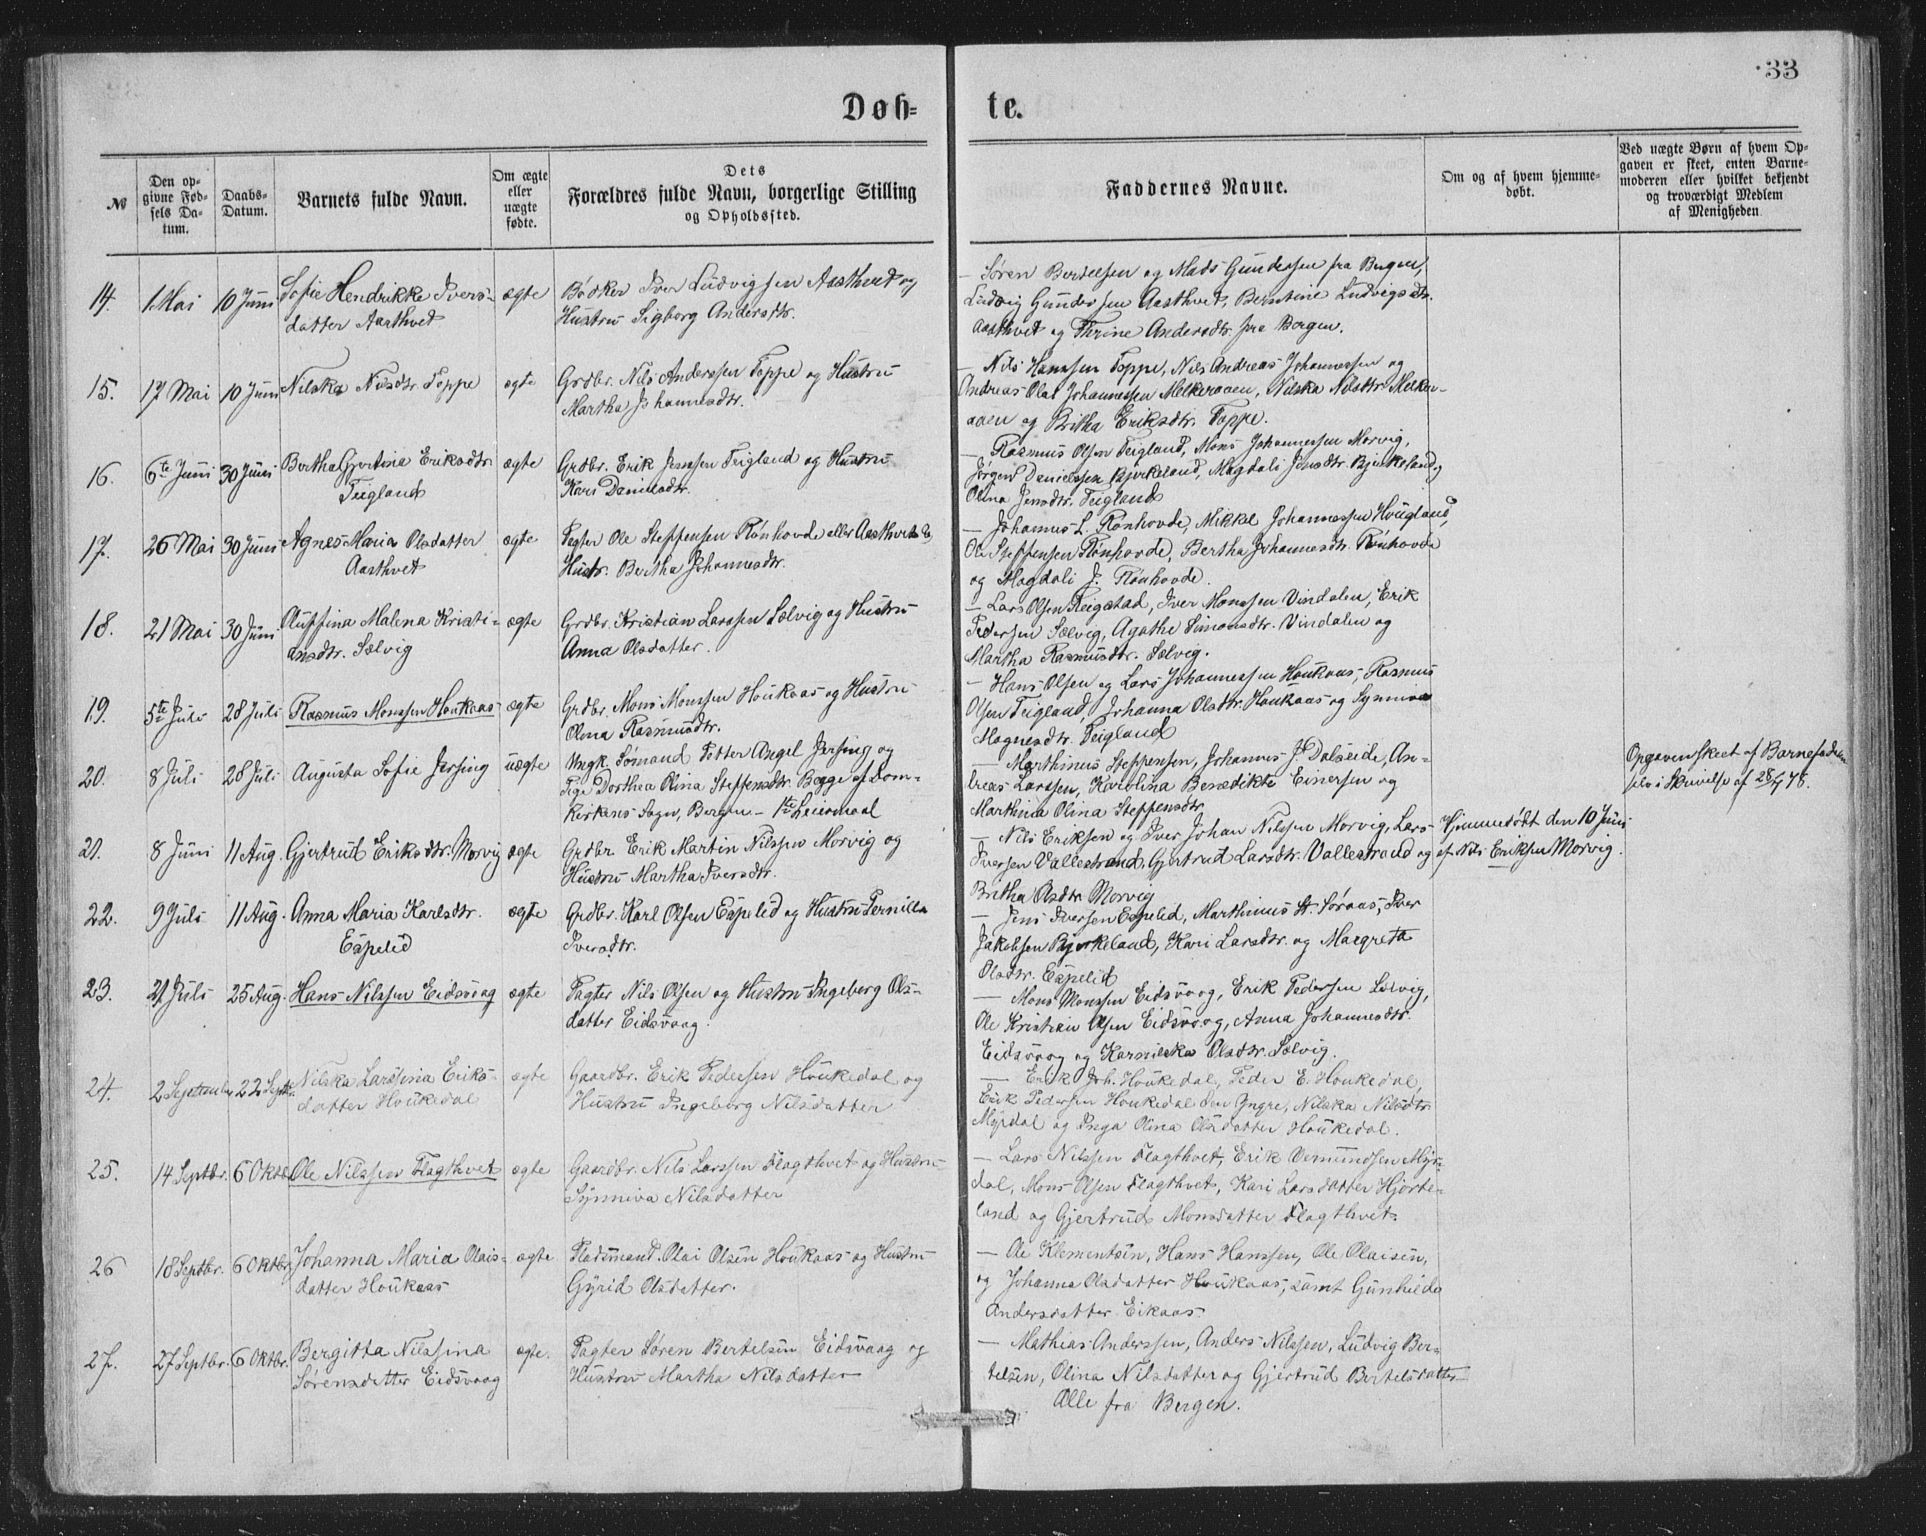 33
Døb-
te.
№
Den op-
givne Fød-
sels Da-
tum.
Daabs-
Datum.
Barnets fulde Navn.
Om ægte
eller
uægte
fødte.
Dets
Forældres fulde Navn, borgerlige Stilling
og Opholdssted.
Faddernes Navne.
Om og af hvem hjemme-
døbt.
Ved uægte Børn af hvem Op-
gaven er skeet, enten Barne-
moderen eller hvilket bekjendt
og troværdigt Medlem
af Menigheden.
14. 1 Mai 10 Juni Sofie Hendrikke Ivers- ægte Bødker Iver Ludvigsen Aasthvet og
datter Aasthvet Hustru Sigborg Andersdtr.
— Søren Bertelsen og Mads Gundersen fra Bergen,
Ludvig Gundersen Aasthvet, Berntine Ludvigsdtr.
Aasthvet og Thrine Andersdtr. fra Bergen.
15. 17 Mai 10 Juni Nilska Nilsdtr. Toppe ægte Grdbr. Nils Anderssen Toppe og Hustru
Martha Johannesdtr.
— Nils Hanssen Toppe, Nils Andreas Johannessen og
Andreas Olai Johannessen Melkeraaen, Nilska Nilsdtr. Melker-
aaen og Britha Eriksdtr. Toppe.
16. 6te Juni 30 Juni Bertha Gjertina Eriksdtr. ægte Grdbr. Erik Jenssen Teigland og Hustru
Teigland Kari Danielsdtr.
— Rasmus Olsen Teigland, Mons Johannessen Morvig,
Jørgen Danielssen Bjørkeland, Magdali Jensdtr. Bjørkeland og
Olina Jensdtr. Teigland
17. 26 Mai 30 Juni Agnes Maria Olsdatter ægte Pagter Ole Steffensen Rønhovde eller Aasthvet &
Aasthvet Hustr. Bertha Johannesdtr.
— Johannes L. Rønhovde, Mikkel Johannessen Hougland,
Ole Steffensen Rønhovde, Bertha Johannesdtr. Rønhovde
og Magdali J. Rønhovde.
18. 21 Mai 30 Juni Oluffina Malena Kristi- ægte Grdbr. Kristian Larssen Sælvig og Hustru
ansdtr. Sælvig Anna Olsdatter.
— Lars Olsen Reigstad, Iver Monssen Vindalen, Erik
Pedersen Sælvig, Agathe Simonsdtr. Vindalen og
Martha Rasmusdtr. Sælvig.
19. 5te Juli 28 Juli Rasmus Monssen Houkaas ægte Grdbr. Mons Monssen Houkaas og Hustru
Olina Rasmusdtr.
— Hans Olsen og Lars Johannessen Houkaas, Rasmus
Olsen Teigland, Johanna Olsdtr. Houkaas og Synneva
Magnesdtr. Teigland
20. 8 Juli 28 Juli Augusta Sofie Jersing uægte Ungk. Sømand Petter Angel Jersing og
Pige Dorthea Olina Steffensdtr. Begge af Dom-
kirkens Sogn, Bergen — 1ste Leiermaal
— Marthinus Steffensen, Johannes J. Dalseide, An-
dreas Larssen, Karolina Benedikte Einersen og
Marthina Olina Steffensdtr.
Opgaven skeet af Barnefaderen
selv i Skrivelse af 28/7 78.
21. 8 Juni 11 Aug. Gjertrud Eriksdtr. Morvig ægte Grdbr Erik Martin Nilssen Morvig og
Hustru Martha Iversdtr.
— Nils Eriksen og Iver Johan Nilssen Morvig, Lars
Iversen Vallestrand, Gjertrud Larsdtr. Vallestrand og
Britha Olsdtr. Morvig
Hjemmedøbt den 10 Juni
af Nils Eriksen Morvig.
22. 9 Juli 11 Aug. Anna Maria Karlsdtr. ægte Grdbr. Karl Olsen Espelid og Hustru Pernilla
Espelid Iversdtr.
— Jens Iversen Espelid, Marthinus A. Søraas, Iver
Jakobsen Bjørkeland, Kari Larsdtr. og Margreta
Olsdtr. Espelid
23. 21 Juli 25 Aug. Hans Nilssen Eidsvaag ægte Pagter Nils Olsen og Hustru Ingeborg Ols-
datter Eidsvaag.
— Mons Monssen Eidsvaag, Erik Pedersen Sælvig,
Ole Kristian Olsen Eidsvaag, Anna Johannesdtr.
Eidsvaag og Karnilska Olsdtr. Sælvig.
24. 2 September 22 Septbr. Nilska Larssina Eriks- ægte Gaardbr. Erik Pedersen Houkedal og
datter Houkedal Hustru Ingeborg Nilsdatter
— Erik Joh. Houkedal, Peder E. Houkedal,
Erik Pedersen Houkedal den Yngre, Nilska Nilsdtr.
Myrdal og Inga Olina Olsdatter Houkedal.
25. 14 Septbr. 6 Oktbr. Ole Nilssen Flagthvet ægte Gaardbr. Nils Larssen Flagthvet og Hustru
Synniva Nilsdatter
— Lars Nilssen Flagthvet, Erik Vemundsen Myr-
dal, Mons Olsen Flagthvet, Kari Larsdatter Hjorte-
land og Gjertrud Monsdatter Flagthvet.
26 18 Septbr. 6 Oktbr. Johanna Maria Olais- ægte Pladsmand. Olai Olsen Houkaas og Hustru
datter Houkaas Gyrid Olsdatter.
— Ole Klementsen, Hans Hanssen, Ole Olaisen,
og Johanna Olsdatter Houkaas, samt Gunhilda
Andersdatter Eikaas
27. 27 Septbr. 6 Oktbr. Bergitta Nilssina ægte. Pagter Søren Bertelsen Eidsvaag og
Sørensdatter Eidsvaag Hustru Martha Nilsdatter
— Mathias Anderssen, Anders Nilssen, Ludvig Ber-
telsen, Olina Nilsdatter og Gjertrud Bertelsdatter
Alle fra Bergen.